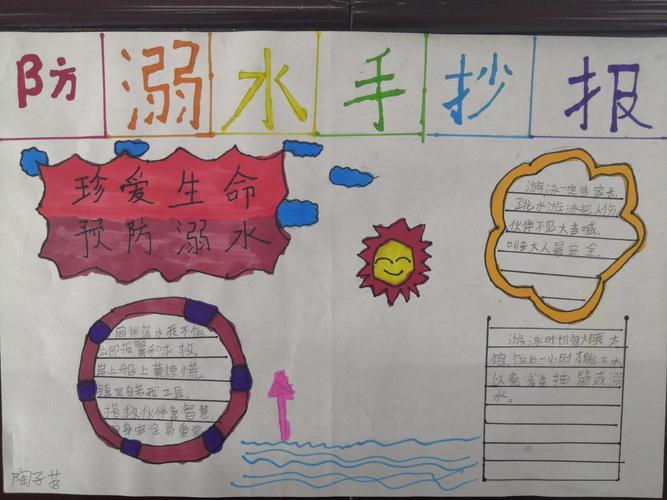 防溺水手抄报
珍爱生命
预防溺水
游泳一定告家长
跳水游泳把人伤
伙伴不见大声喊
叫来大人最安全
同伴落水我不怕
立即报警和呼救
岸上船上莫惊慌
镇定自若找工具
搭救伙伴靠智慧
自身安全最重要
游泳时切勿太饿、太
饱、饭后一小时才能下水
以免发生抽筋或溺
水。
陶子